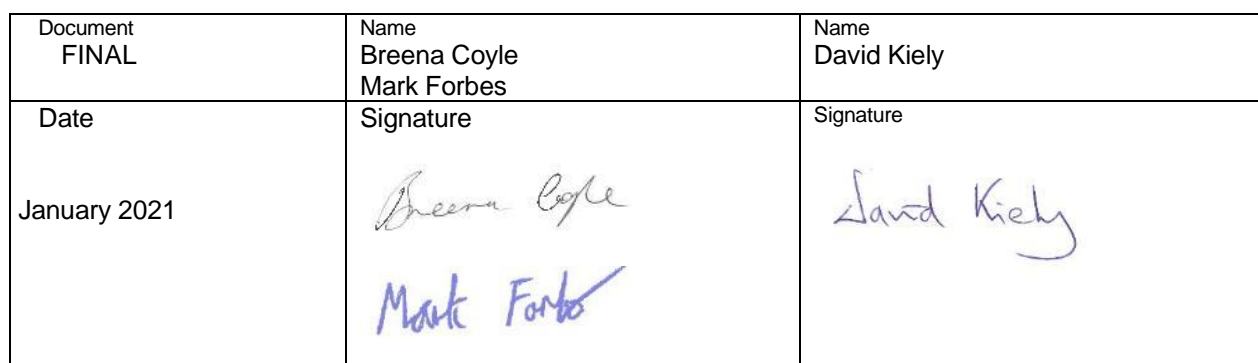 Document
FINAL
Name
Breena Coyle
Mark Forbes
Name
David Kiely
Date
January 2021
Signature
Breena Coyle
Mark Forbes
Signature
David Kiely